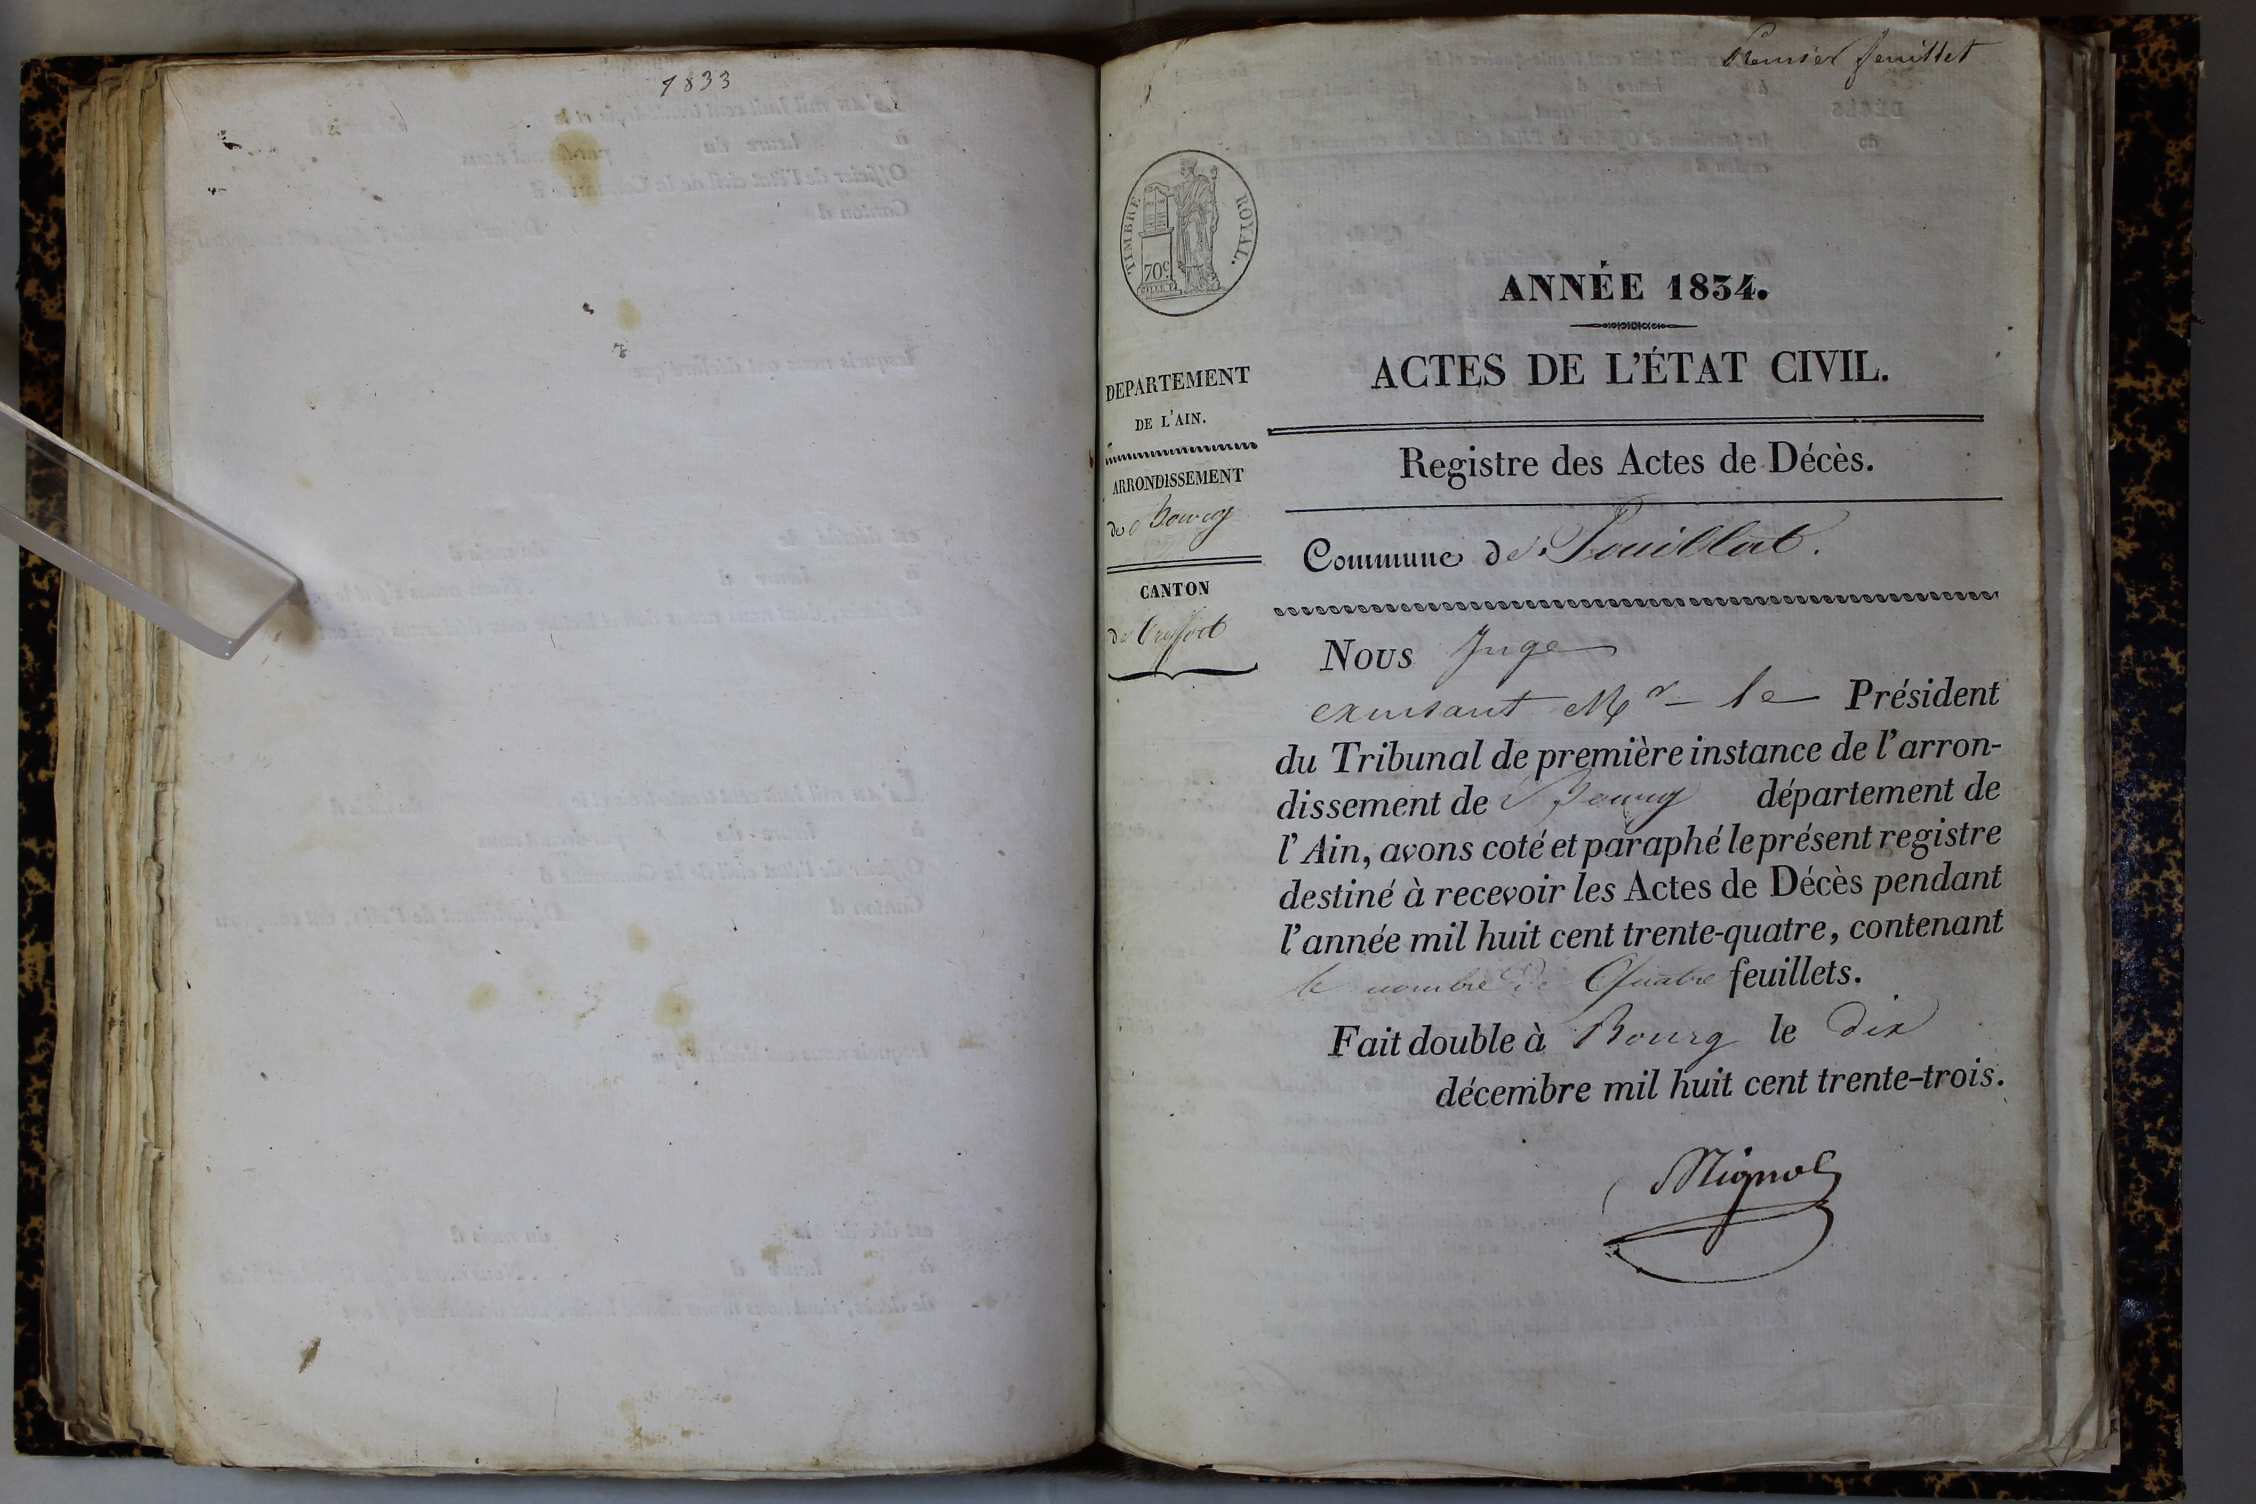 1833
Premier feuillet
TIMBRE ROYAL.
70c
ANNÉE 1834.
ACTES DE L'ÉTAT CIVIL.
Registre des Actes de Décès.
Commune de Pouillat.
DEPARTEMENT
DE L'AIN.
ARRONDISSEMENT
de Bourg
CANTON
de Treffort
Nous Juge
excusant Mr le Président
du Tribunal de première instance de l'arron-
dissement de Bourg département de
l'Ain, avons coté et paraphé le présent registre
destiné à recevoir les Actes de Décès pendant
l'année mil huit cent trente-quatre, contenant
le nombre de Quatre feuillets.
Fait double à Bourg le dix
décembre mil huit cent trente-trois.